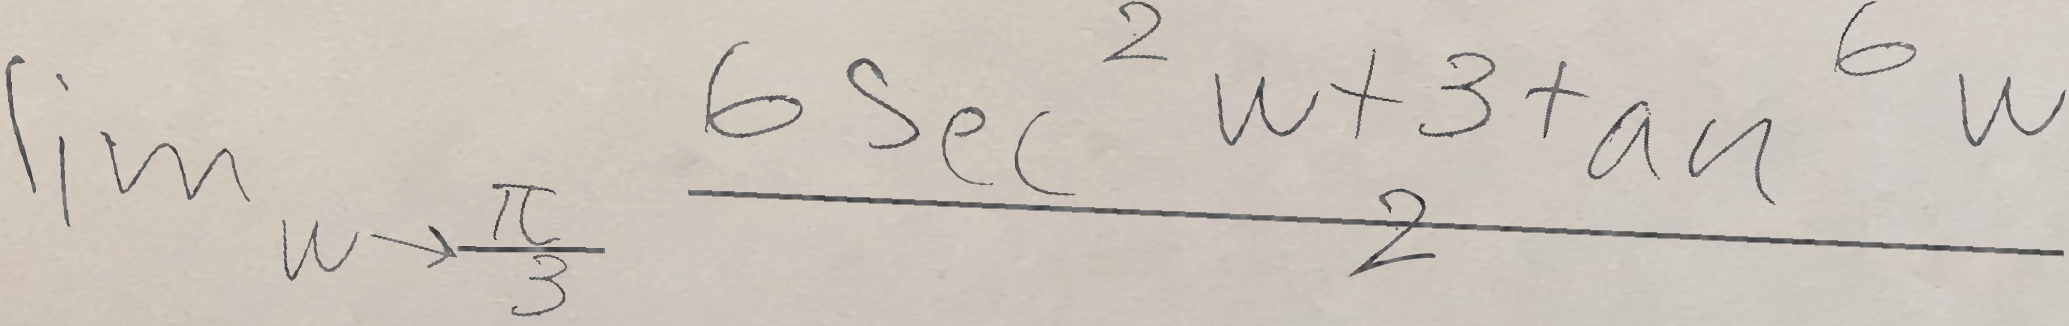 \lim_{w \to \frac{\pi}{3}} \frac{6 \sec^2 w + 3 \tan^6 w}{2}